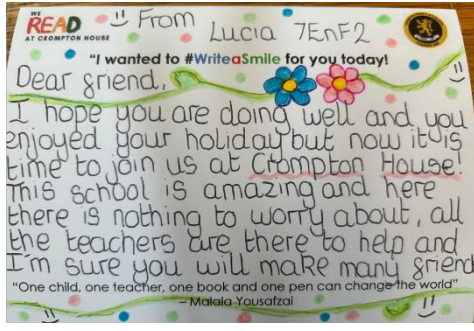 WE
READ
AT CROMPTON HOUSE
From Lucia 7EnF2
"I wanted to #WriteaSmile for you today!
Dear friend,
I hope you are doing well and you
enjoyed your holiday but now it is
time to join us at Crompton House!
This school is amazing and here
there is nothing to worry about, all
the teachers are there to help and
I'm sure you will make many friend
"One child, one teacher, one book and one pen can change the world"
– Malala Yousafzai